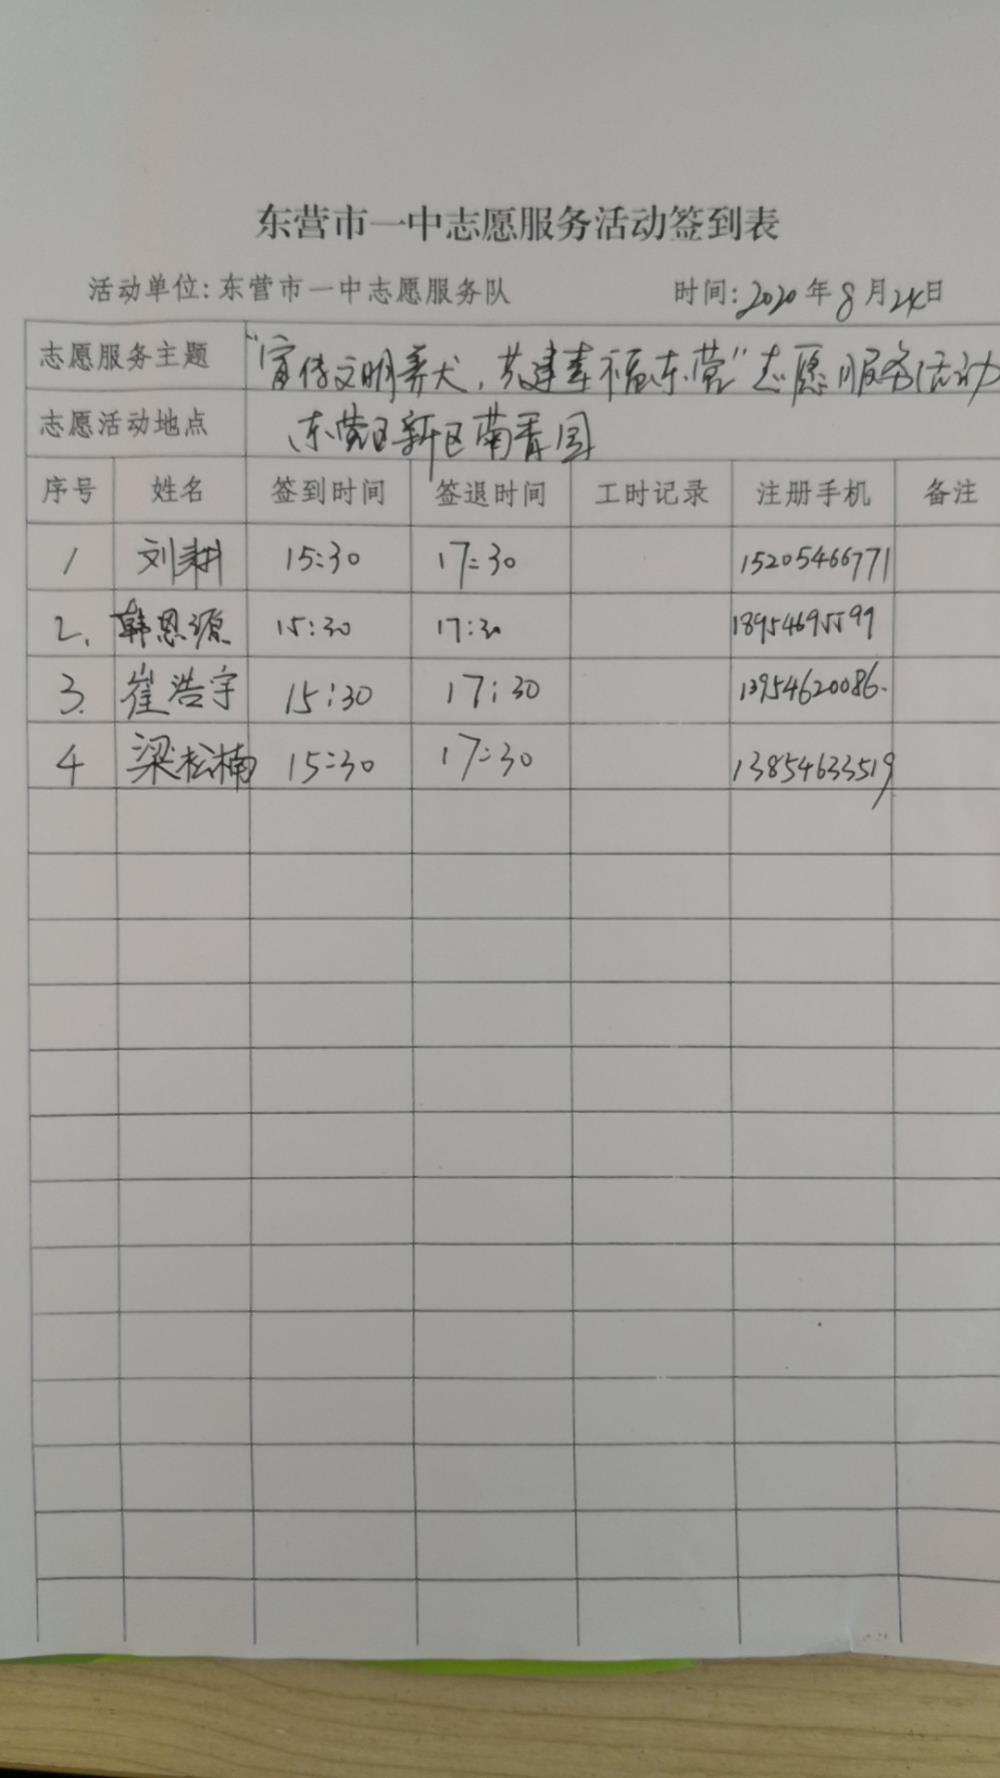 东营市一中志愿服务活动签到表
活动单位:东营市一中志愿服务队 时间:2020年8月24日
志愿服务主题 "宣传文明养犬,共建幸福东营"志愿服务活动
志愿活动地点 东营区新区
序号 姓名 签到时间 签退时间 工时记录 注册手机 备注
1 刘耕 15:30 17:30 15205466771
2. 韩恩源 15:30 17:30 18954695599
3. 崔浩宇 15:30 17:30 13954620086.
4 梁松楠 15:30 17:30 13854633519